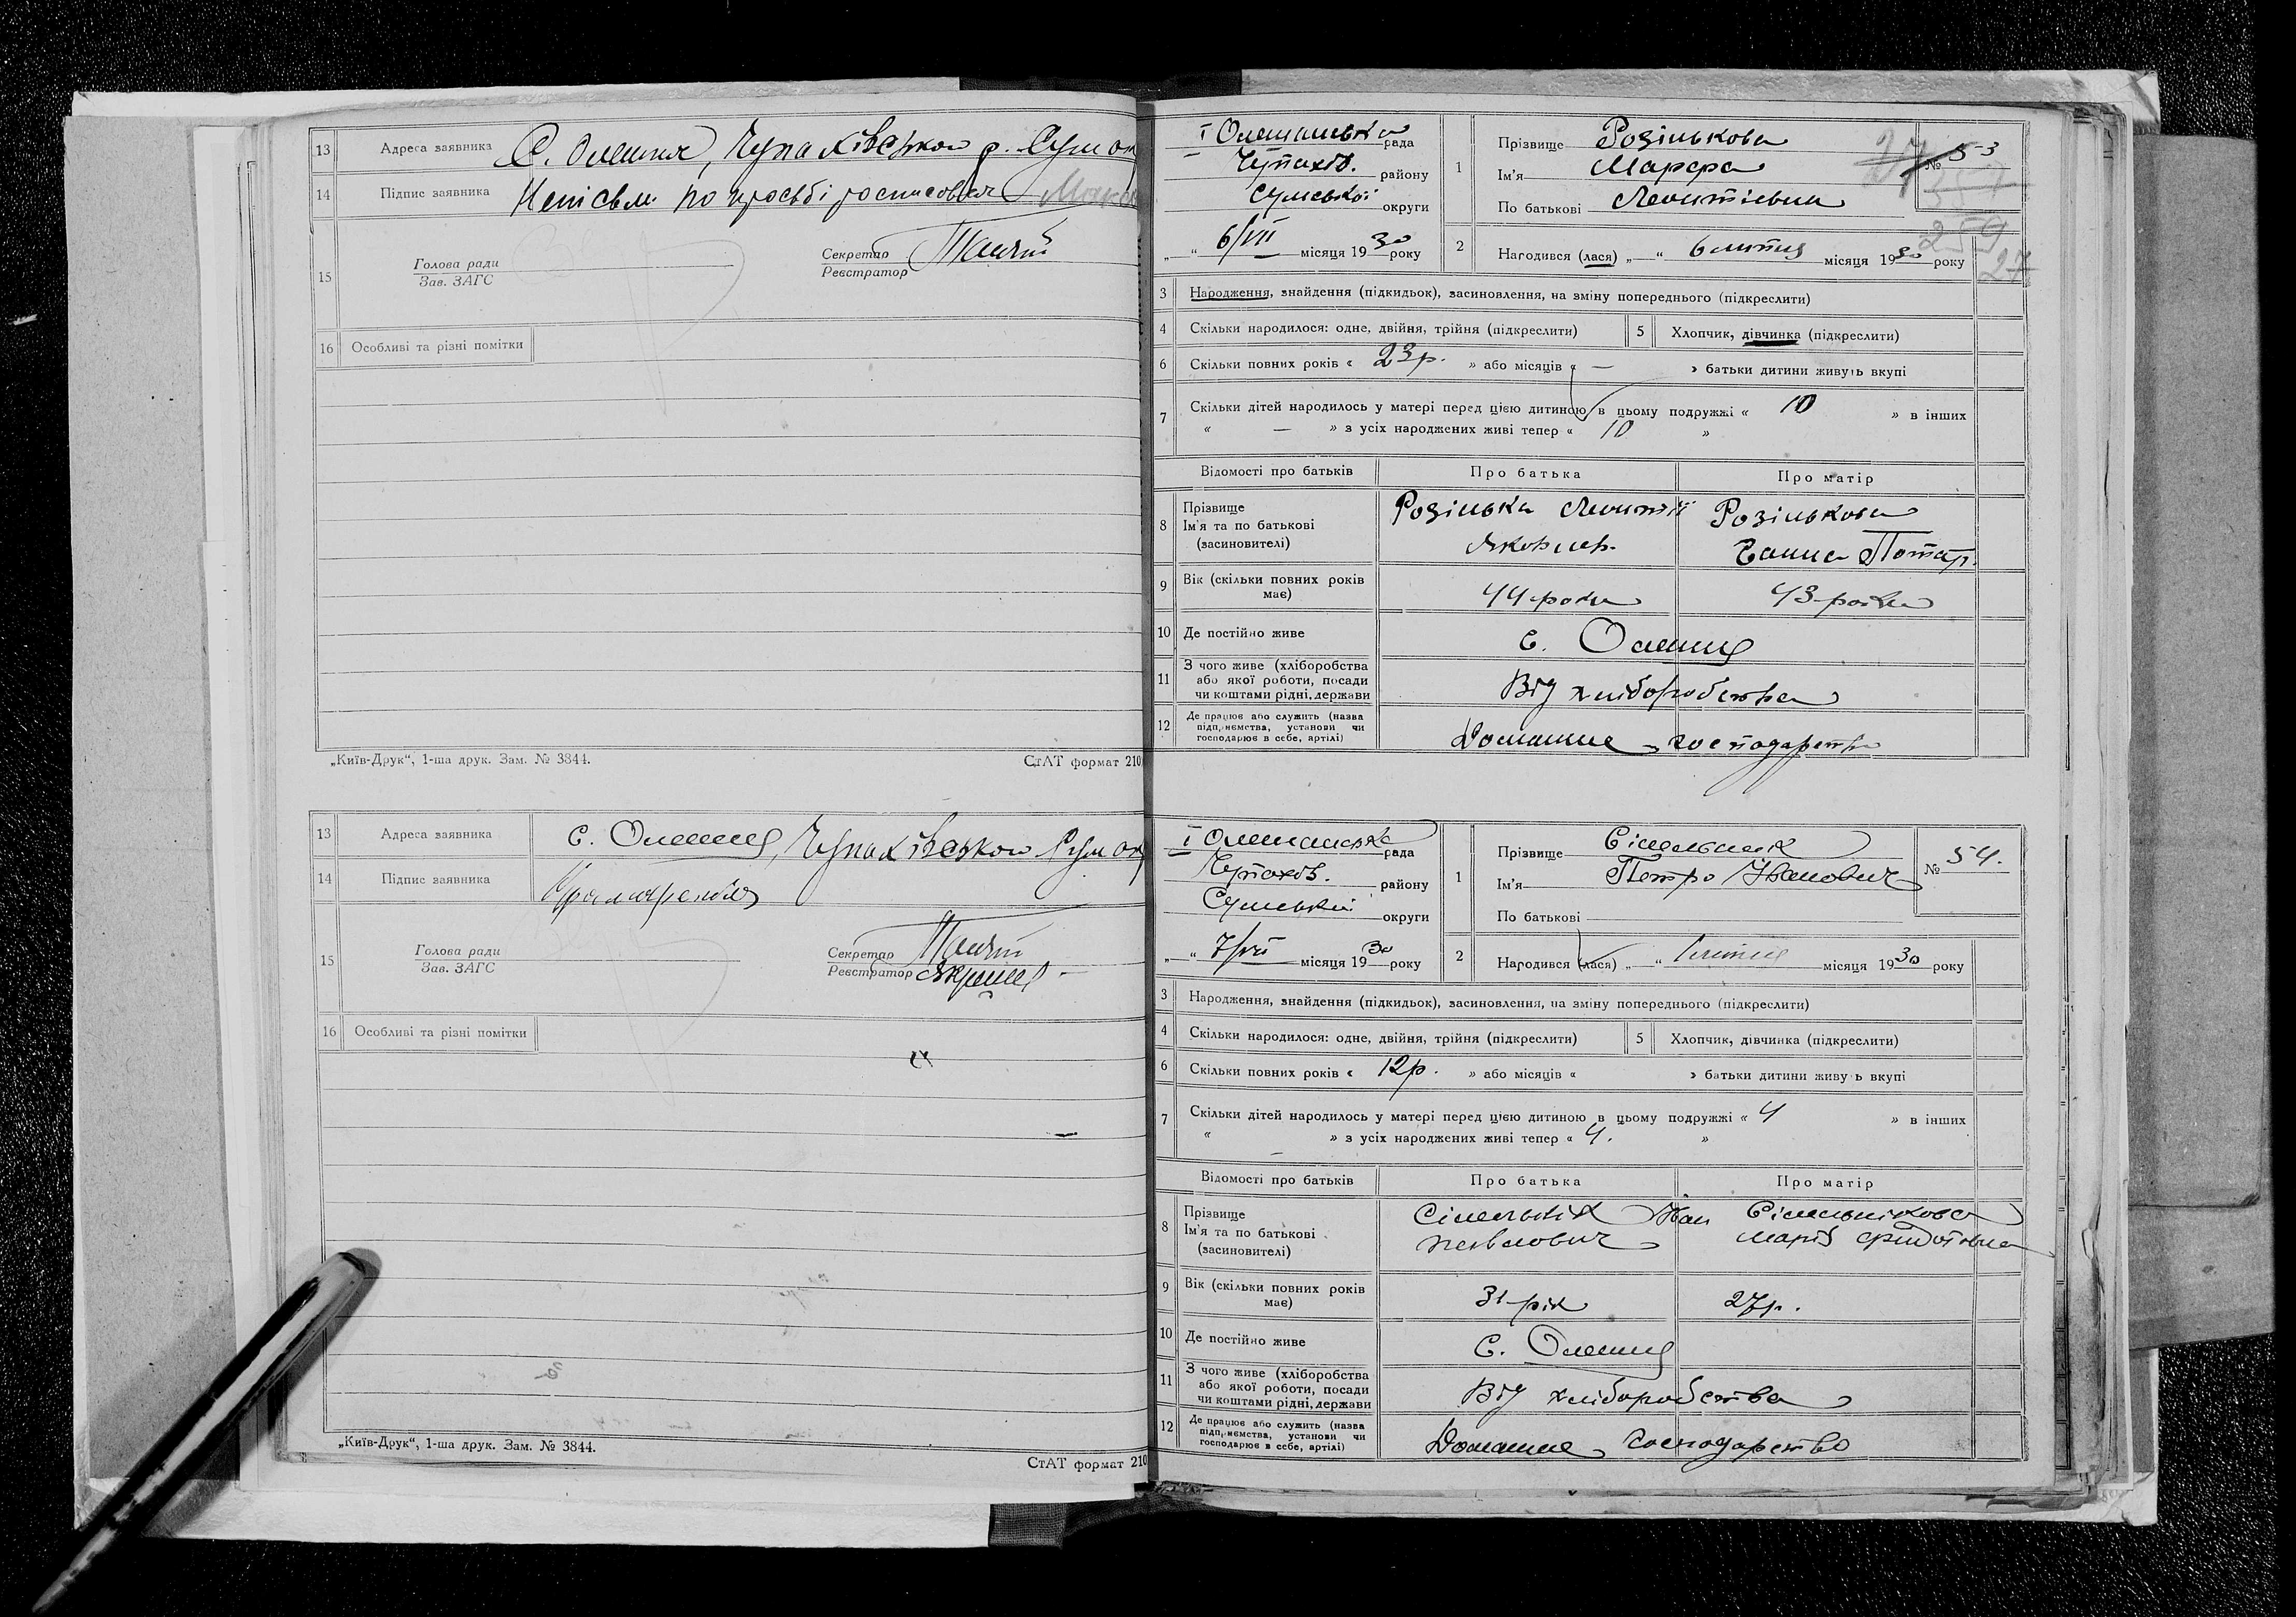 13 Адреса заявника С. Олешня, Чупахівськом р. Сумок
14 Підпис заявника Непісьм. по просьбі росписовал
15 Голова ради Зав. ЗАГС Секретар Реєстратор
16 Особливі та різні помітки
„Київ-Друк“, 1-ша друк. Зам. № 3844. СтАТ формат 210
13 Адреса заявника с. Олешня, Чупахівськом Сум ок
14 Підпис заявника
15 Голова ради Зав. ЗАГС Секретар Реєстратор
16 Особливі та різні помітки
„Київ-Друк“, 1-ша друк. Зам. № 3844.
СтАТ формат 210
І Олешанська рада
Чупахів. району
Сумської округи
„ “ 6/VII місяця 1930 року
1 Прізвище Розінькова
Ім'я Марфа
По батькові Леонтіевна
№ 53
27
259
27
2 Народився (лася) „ “ 6 липня місяця 1930 року
3 Народження, знайдення (підкидьок), засиновлення, на зміну попереднього (підкреслити)
4 Скільки народилося: одне, двійня, трійня (підкреслити) 5 Хлопчик, дівчинка (підкреслити)
6 Скільки повних років « 23 р. » або місяців « — » батьки дитини живуть вкупі
7 Скільки дітей народилось у матері перед цією дитиною в цьому подружжі « 10 » в інших
« — » з усіх народжених живі тепер « 10 »
Відомості про батьків Про батька Про матір
8 Прізвище Ім'я та по батькові (засиновителі)
Розінька Леонтій Яковлев.
Розінькова Ганна Потап.
9 Вік (скільки повних років має) 44 роки 43 роки
10 Де постійно живе с. Олешня
11 З чого живе (хліборобства або якої роботи, посади чи коштами рідні, держави Від хліборобства
12 Де працює або служить (назва підприємства, установи чи господарює в себе, артілі) Домашне господарство
І Олешанська рада
Чупахів. району
Сумській округи
„ “ 7/VII місяця 1930 року
1 Прізвище Сінельнік
Ім'я Петро Іванович
По батькові
№ 54.
2 Народився (лася) „ “ липня місяця 1930 року
3 Народження, знайдення (підкидьок), засиновлення, на зміну попереднього (підкреслити)
4 Скільки народилося: одне, двійня, трійня (підкреслити) 5 Хлопчик, дівчинка (підкреслити)
6 Скільки повних років « 12 р. » або місяців « » батьки дитини живуть вкупі
7 Скільки дітей народилось у матері перед цією дитиною в цьому подружжі « 4 » в інших
« » з усіх народжених живі тепер « 4. »
Відомості про батьків Про батька Про матір
8 Прізвище Ім'я та по батькові (засиновителі)
Сінельнік Іван Павлович
Сінельнікова Марія Федотовна
9 Вік (скільки повних років має) 31 рік 27 р.
10 Де постійно живе с. Олешня
11 З чого живе (хліборобства або якої роботи, посади чи коштами рідні, держави Від хліборобства
12 Де працює або служить (назва підприємства, установи чи господарює в себе, артілі) Домашне господарство